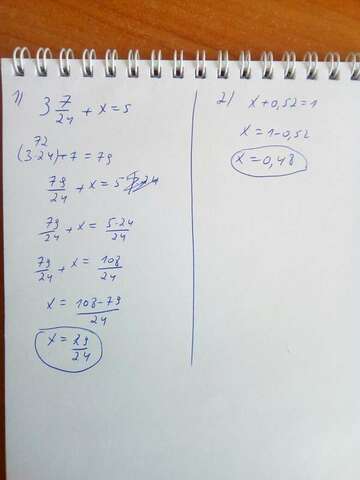 1)
3 7/24 + x = 5
72
(3·24)+7 = 79
79/24 + x = 5
79/24 + x = 5·24/24
79/24 + x = 108/24
x = 108-79/24
x = 29/24
2)
x+0,52=1
x=1-0,52
x=0,48